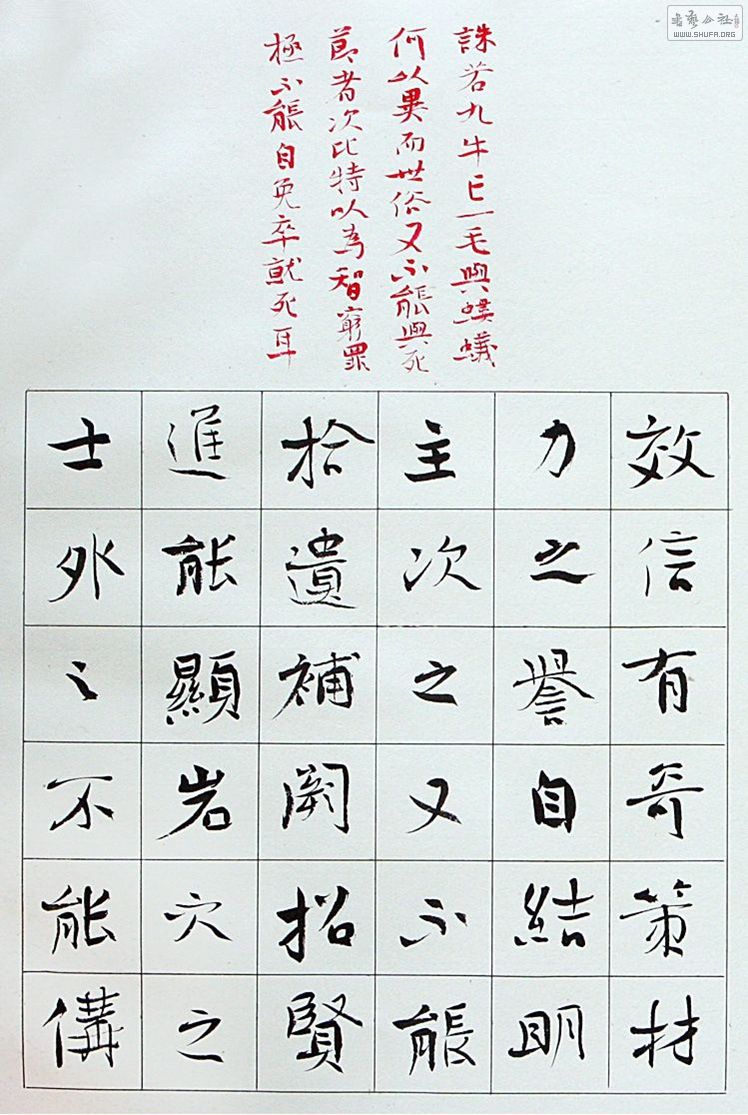 書藝公社
WWW.SHUFA.ORG
誅若九牛亡一毛與螻蟻
何以異而世俗又不能與死
節者次比特以為智窮罪
極不能自免卒就死耳
效信有奇策材
力之譽自結明
主次之又不能
拾遺補闕招賢
進能顯岩穴之
士外之不能備